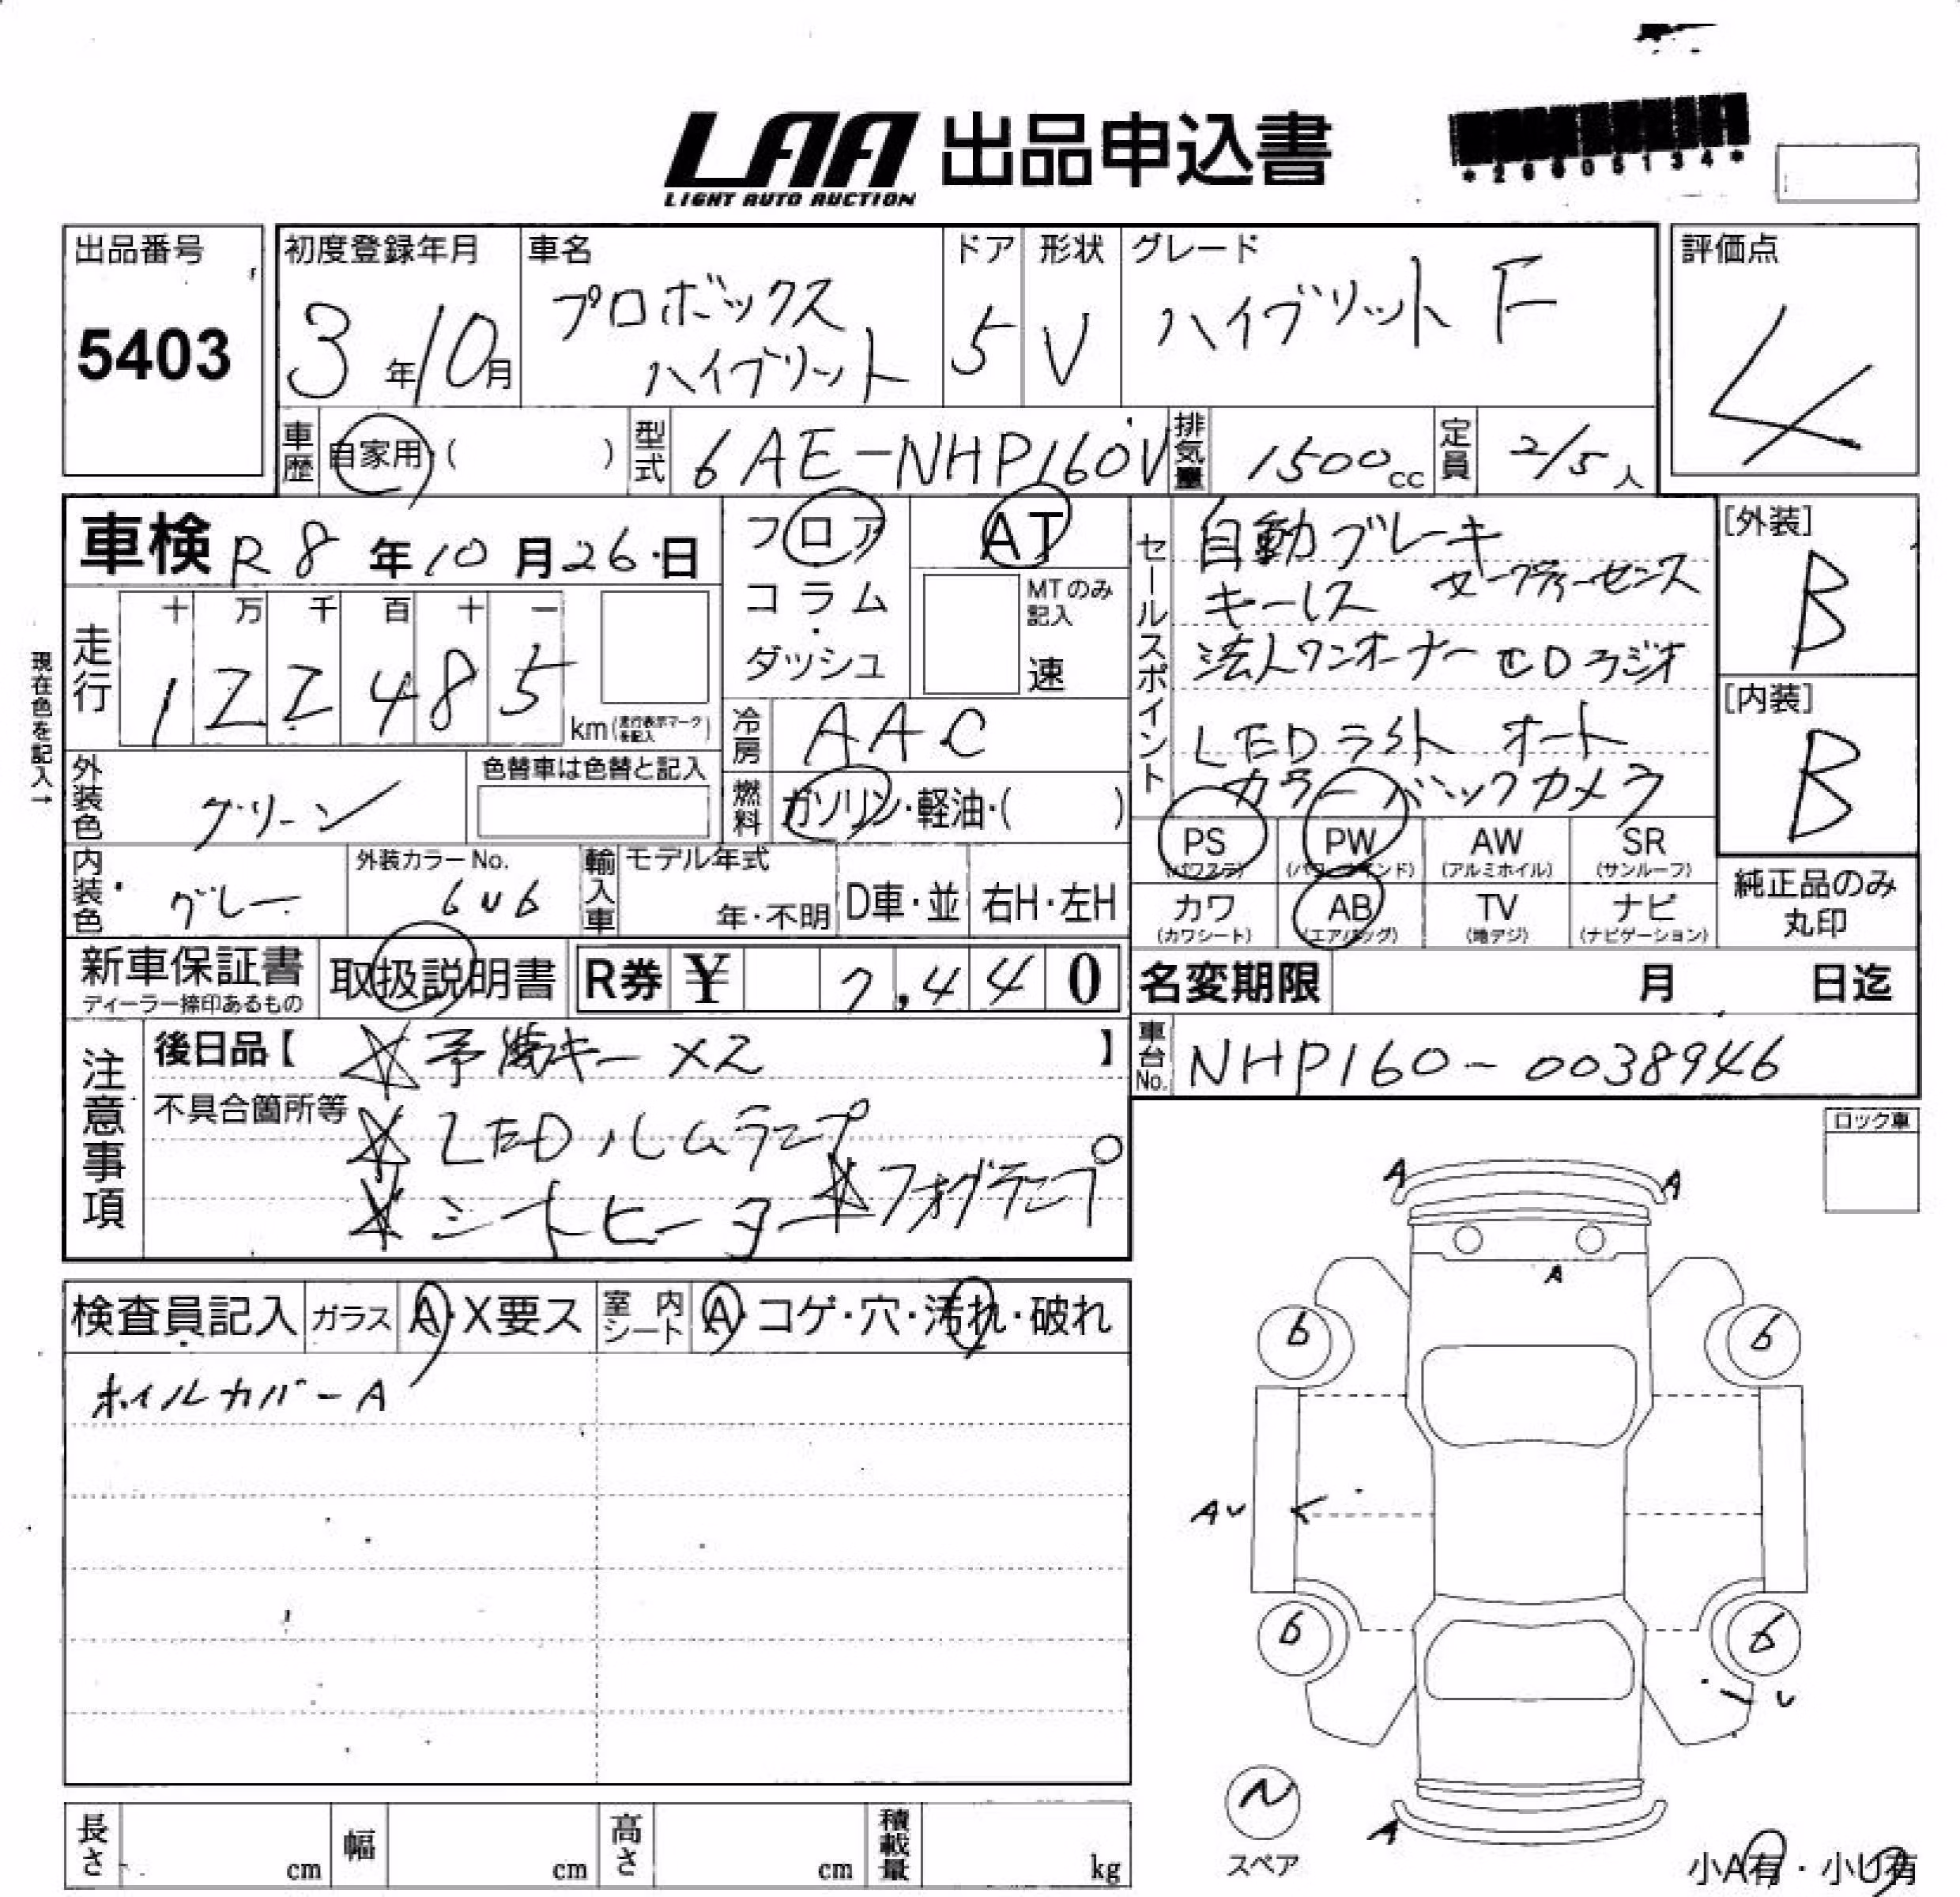 LAA 出品申込書
LIGHT AUTO AUCTION
*26605134*
出品番号
5403
初度登録年月
3年10月
車名
プロボックス
ハイブリット
ドア
5
形状
V
グレード
ハイブリット F
評価点
4
車歴
自家用・( )
型式
6AE-NHP160V
排気量
1500cc
定員
2/5人
車検 R8年10月26日
フロア
コラム・
ダッシュ
AT
MTのみ記入
速
現在色を記入→
走行
十 万 千 百 十 一
1 2 2 4 8 5
km(走行表示マークを記入)
冷房
AAC
燃料
ガソリン・軽油・( )
外装色
グリーン
色替車は色替と記入
内装色
グレー
外装カラーNo.
6U6
輸入車
モデル年式
年・不明
D車・並
右H・左H
セールスポイント
自動ブレーキ
キーレス セーフティーセンス
法人ワンオーナー CDラジオ
LEDライト オート
カラーバックカメラ
[外装]
B
[内装]
B
PS
(パワステ)
PW
(パワーウインド)
AW
(アルミホイル)
SR
(サンルーフ)
カワ
(カワシート)
AB
(エアバッグ)
TV
(地デジ)
ナビ
(ナビゲーション)
純正品のみ
丸印
新車保証書
ディーラー捺印あるもの
取扱説明書
R券 ¥ 7,440
名変期限 月 日迄
車台No.
NHP160-0038946
注意事項
後日品【 ☆予備キー×2 】
不具合箇所等
☆LEDルムランプ
☆シートヒーター ☆フォグランプ
ロック車
検査員記入
ガラス
A・X要ス
室内シート
A・コゲ・穴・汚れ・破れ
ホイルカバーA
A A
A
6 6
AU
6 6
U
スペア
A
小A有・小U有
長さ cm
幅 cm
高さ cm
積載量 kg